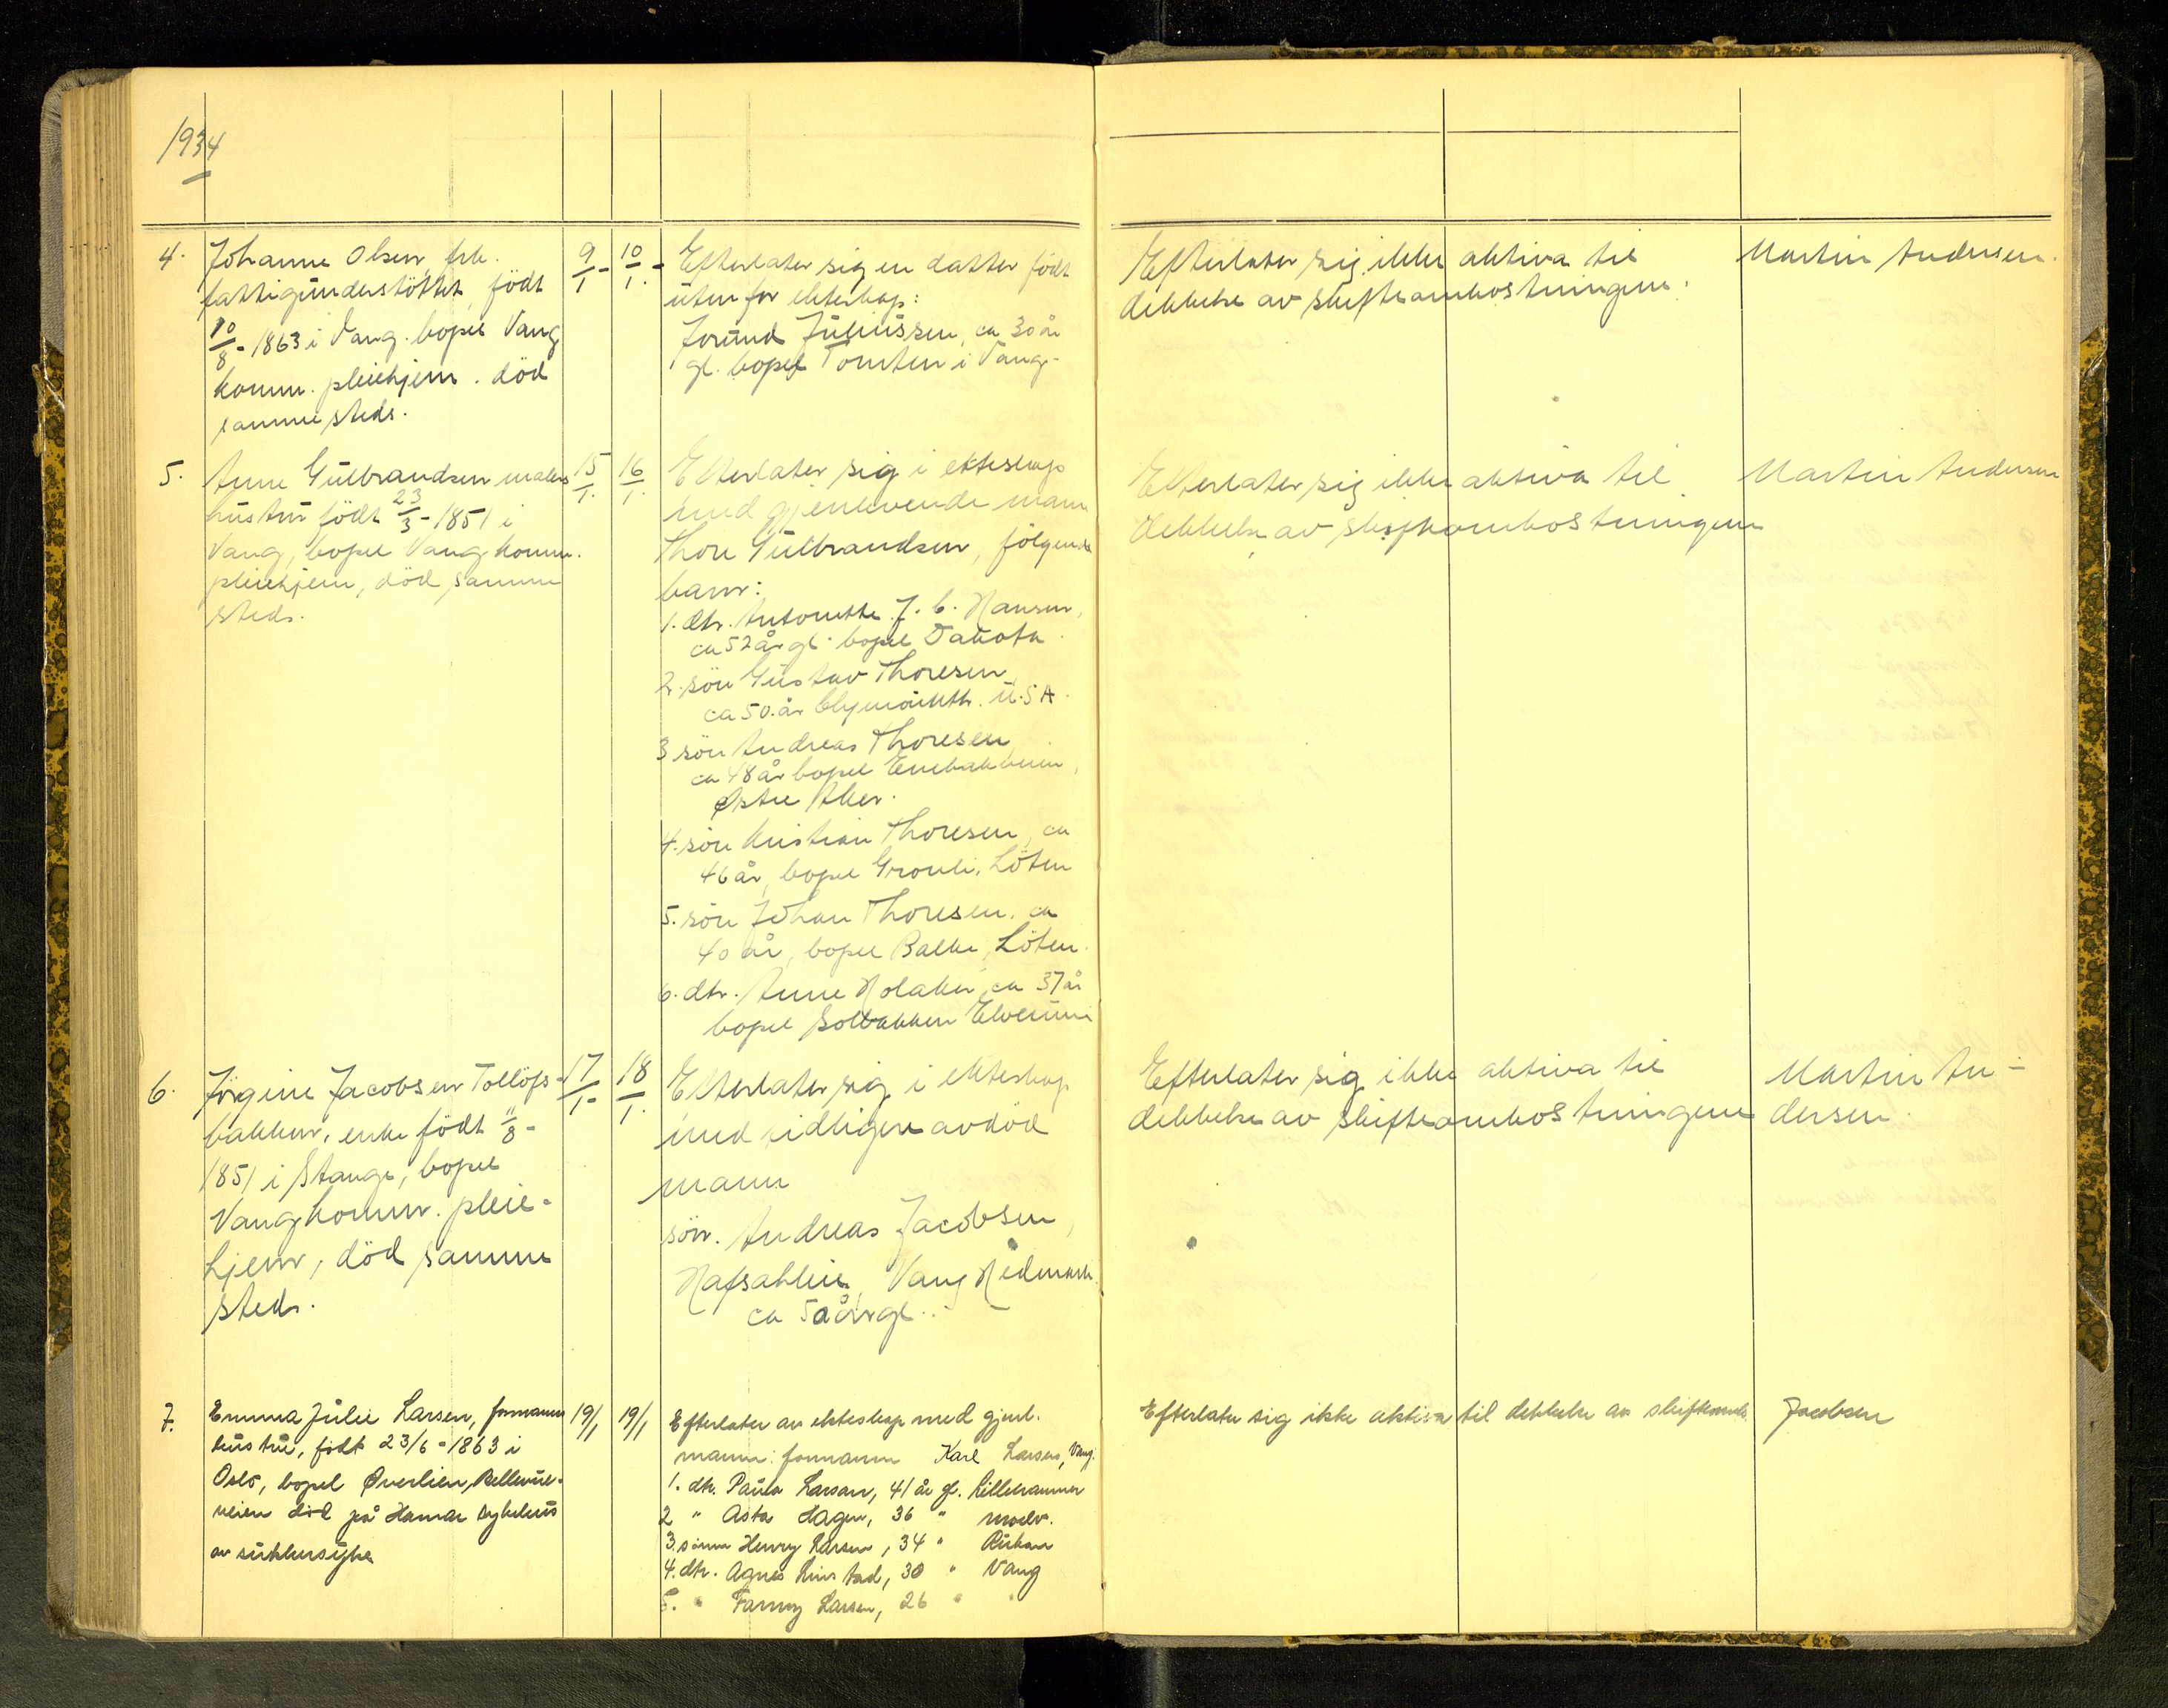 1934
4. Johanne Olsen, frk.
fattigunderstöttet, född
10/8 - 1863 i Vang. bopel Vang
komm. pleiehjem. död
samme steds.
9/1 - 10/1. -
Efterlater sig en datter født
uten for ekteskap:
Jorund Juliussen, ca 30 år
gl. bopel Tomten i Vang.
Efterlater sig ikke aktiva til
dekkelse av skifteomkostningene.
Martin Andersen.
5. Anne Gulbrandsen malers
hustru född 23/3 - 1851 i
Vang, bopel Vang komm.
pleiehjem, död samme
steds.
15/1. 16/1.
Efterlater sig i ekteskap
med gjenlevende mann
Thore Gulbrandsen, følgende
barn:
1. dtr. Antonette J. C. Hansen,
ca 52 år gl. bopel Dakota.
2. søn Gustav Thoresen,
ca 50. år U.S.A.
3 søn Andreas Thoresen,
ca 48 år bopel Enebakveien,
Østre Aker.
4. søn Kristian Thoresen, ca
46 år, bopel Grønli, Löten
5. søn Johan Thoresen, ca
40 år, bopel Balke, Löten.
6. dtr. Anne Holaker, ca 37 år
bopel Solbakken Elverum
Efterlater sig ikke aktiva til
dekkelse av skifteomkostningene
Martin Andersen
6. Jörgine Jacobsen Tollöfs-
bakken, enke født 11/8 -
1851 i Stange, bopel
Vang komm. pleie-
hjem, död samme
steds.
17/1- 18/1.
Efterlater sig i ekteskap
med tidligere avdöd
mann
sön. Andreas Jacobsen,
Hafsahleie, Vang Hedmark.
ca 50 år gl.
Efterlater sig ikke aktiva til
dekkelse av skifteomkostningene
Martin An-
dersen.
7. Emma Julie Larsen, formanns
hustru, født 23/6 - 1863 i
Oslo, bopel Øverlien, Bellevue-
veien död på Hamar sykehus
av sukkersyke
19/1 19/1
Efterlater av ekteskap med gjenl.
mann: formann Karl Larsen, Vang.
1. dtr. Paula Larsen, 41 år gl. Lillehammer
2 " Asta Hagen, 36 " Moelv.
3. sönn Henry Larsen, 34 " Rukan
4. dtr. Agnes Rinstad, 30 " Vang
5. " Fanny Larsen, 26 " "
Efterlater sig ikke aktiva til dekkelse av skifteomk.
Jacobsen